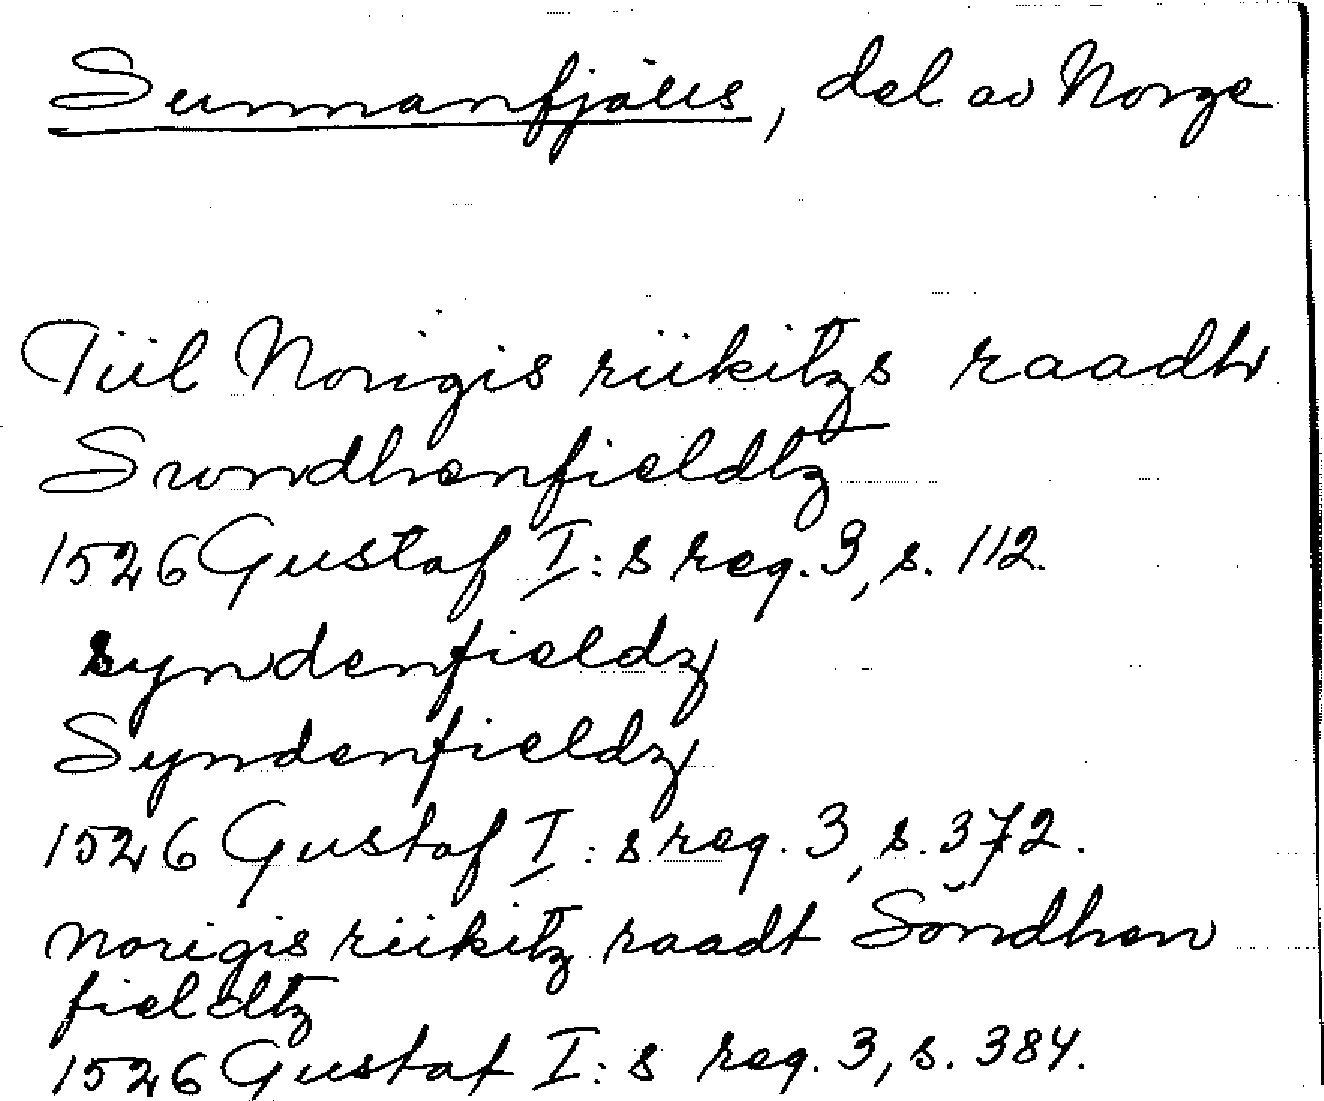 Sunnanfjälls, del av Norge
Tiil Norigis riikitzs raadh
Swndhenfieldtz
1526 Gustaf I:s reg. 3, s. 112.
syndenfieldz
Syndenfieldz
1526 Gustaf I:s reg. 3, s. 372.
Norigis riikitz raadt Söndhen
fieldtz
1526 Gustaf I:s reg. 3, s. 384.